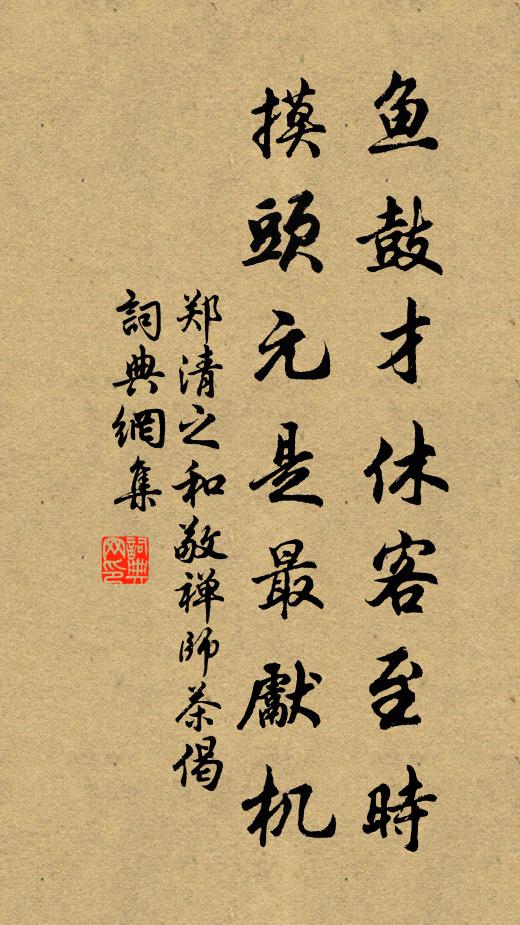 鱼鼓才休客至時
摸頭元是最獻机
郑清之和敬禅師茶偈
詞典網集
詞典网印